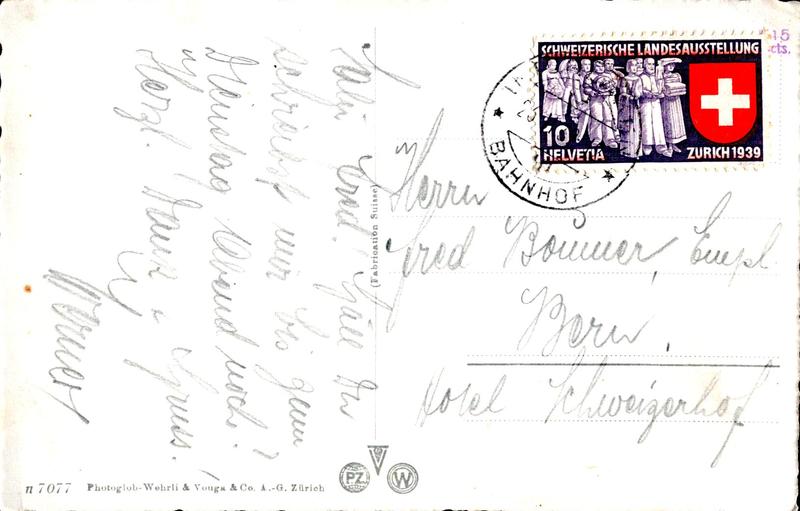 SCHWEIZERISCHE LANDESAUSSTELLUNG
10
HELVETIA
ZURICH 1939
BAHNHOF
15
cts.
Herrn
Fred Bommer, Empl.
Bern,
Hotel Schweizerhof
Salü Fred!
schreibst mir
Dienstag Abend noch?
Herzl. Dank & Gruss!
Werner
(Fabrication Suisse)
n 7077 Photoglob-Wehrli & Vouga & Co. A.-G. Zürich
PZ
W